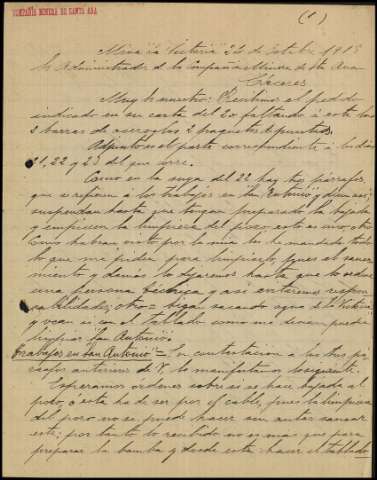 COMPAÑIA MINERA DE SANTA ANA
(1)
Mina "La Victoria" 24 de Octubre 1915
Sr Administrador de la Compañia Minera de Sta Ana
Cáceres
Muy Sr nuestro: Recibimos el pedido
indicado en su carta del 20 faltando á este los
2 barras de acero y los 2 paquetes de puntas.
Adjunto es el parte correspondiente á los dias
21, 22 y 23 del que corre.
Como en la suya del 22 hay tres párrafos
que se refieren á los trabajos en "San Antonio" y dicen así;
suspendan hasta que tengan preparado la bajada
y empiecen la limpieza del pozo, esto es uno, otro
Como habran visto por la mia les he mandado todo
lo que me piden para limpiarlo, pues el sanea-
miento y demás lo dejaremos hasta que lo ordene
una persona técnica y asi evitaremos respon-
sabilidades; otro = Sigan sacando agua de la "Victoria"
y vean si con el tablado como me dicen pueden
limpiar San Antonio.
Trabajos en San Antonio = En contestacion a los tres pá-
rrafos anteriores de V. le manifestamos lo siguiente.
Esperamos ordenes sobre si se hace bajada al
pozo, ó esta ha de ser por el cable, pues la limpieza
del pozo no se puede hacer sin antes sanear
este; por tanto lo recibido no es mas que para
preparar la bomba y desde esta hacer el tablado